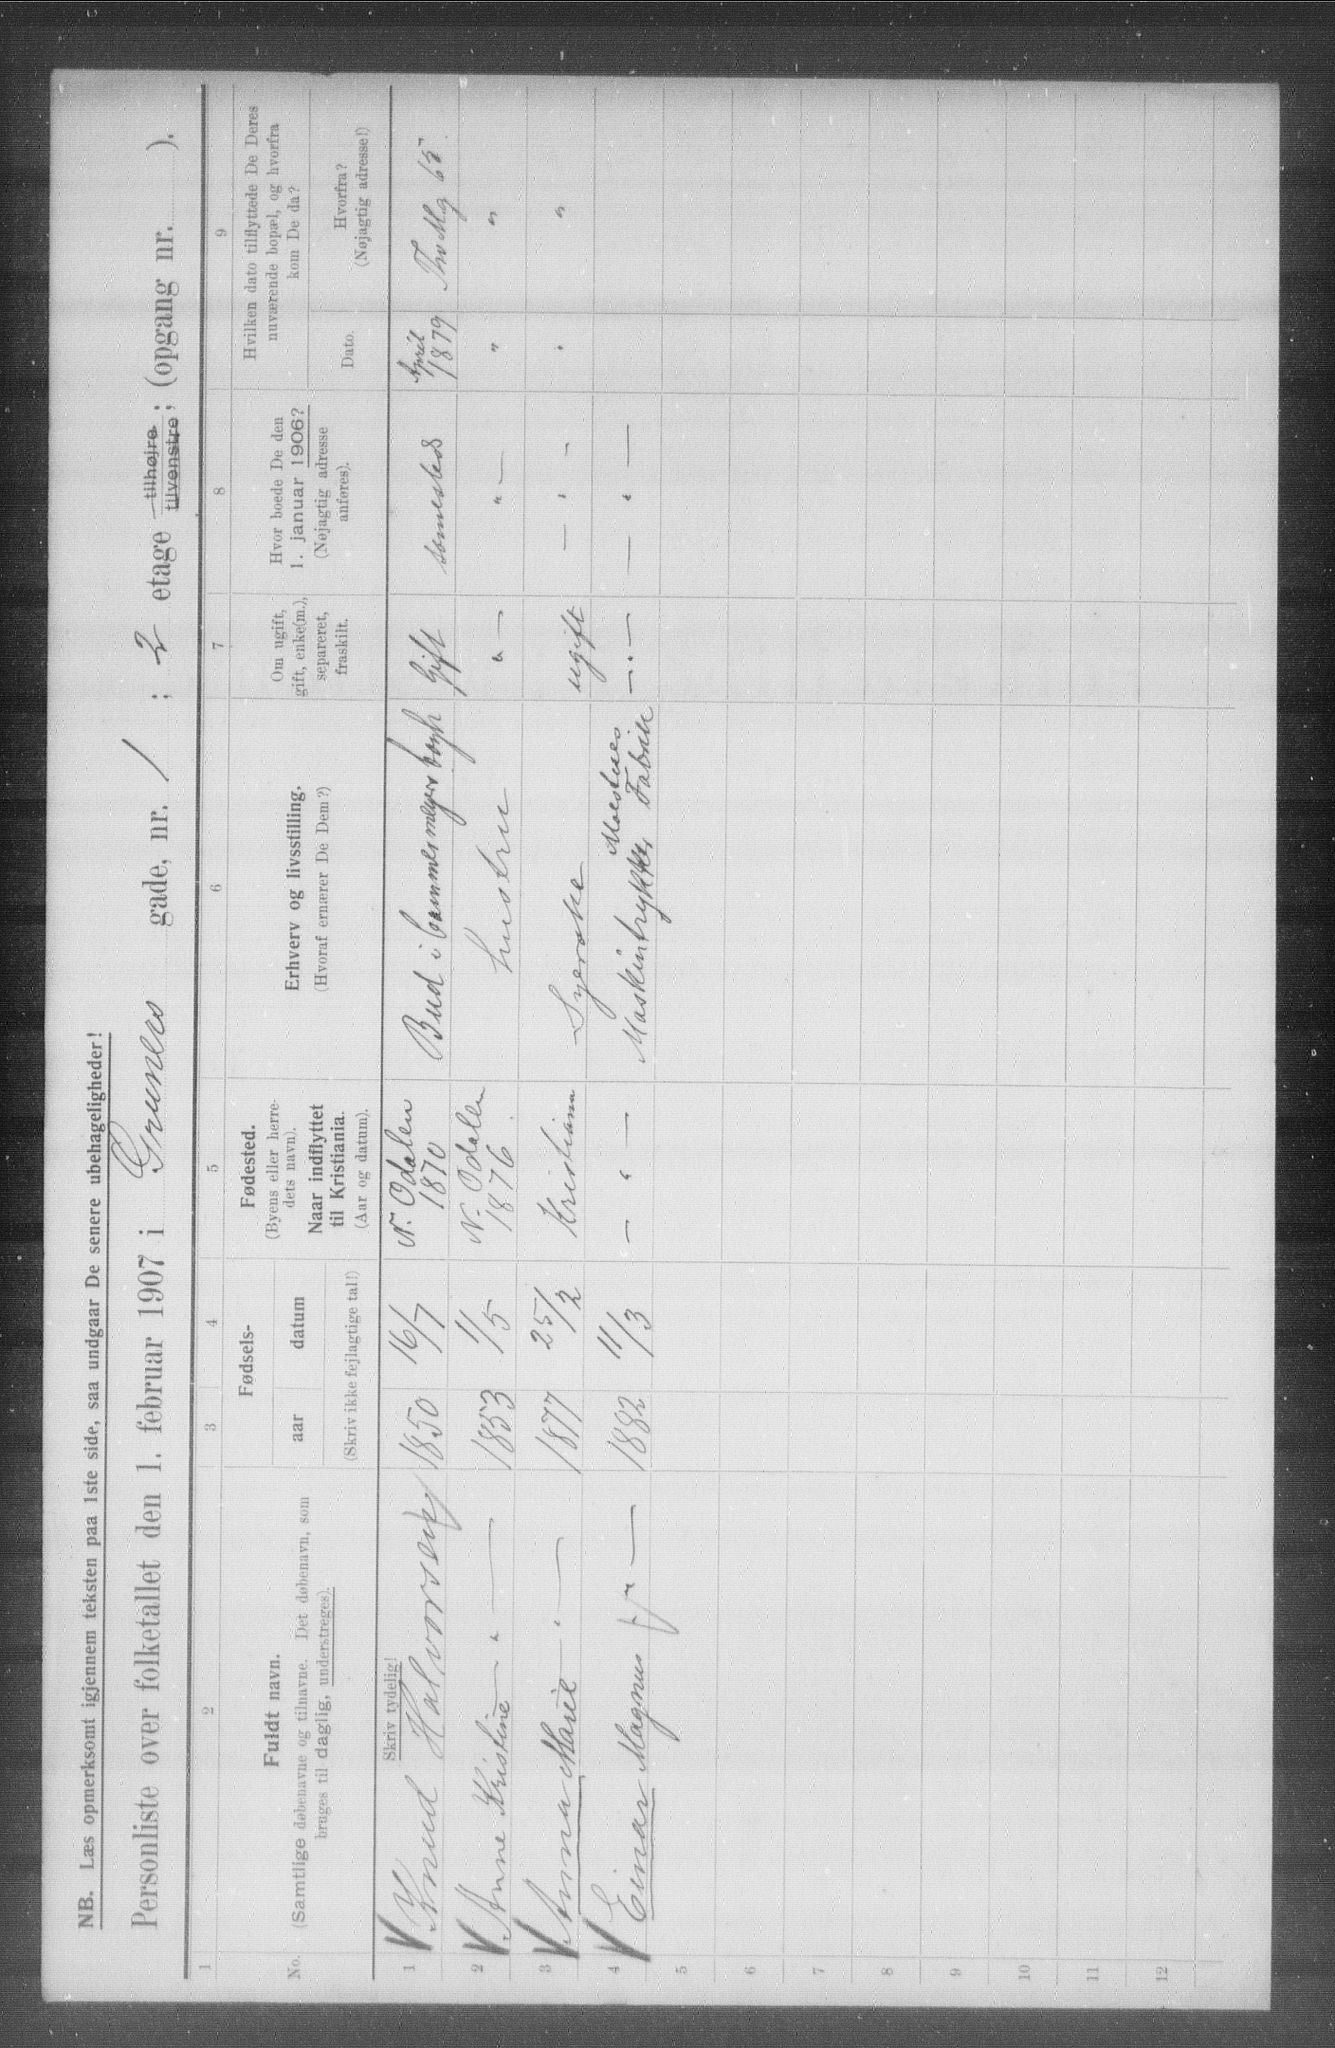 NB. Læs opmerksomt igjennem teksten paa 1ste side, saa undgaar De senere ubehageligheder!
Personliste over folketallet den 1. februar 1907 i Gruners gade, nr. 1 ; 2 etage tilhøjre tilvenstre; (opgang nr. ).
1 2 3 4 5 6 7 8 9
No.
Fuldt navn.
(Samtlige døbenavne og tilnavne. Det døbenavn, som
bruges til daglig, understreges).
Fødsels-
aar datum
(Skriv ikke fejlagtige tal!)
Fødested.
(Byens eller herre-
dets navn).
Naar indflyttet
til Kristiania.
(Aar og datum).
Erhverv og livsstilling.
(Hvoraf ernærer De Dem?)
Om ugift,
gift, enke(m.),
separeret,
fraskilt.
Hvor boede De den
1. januar 1906?
(Nøjagtig adresse
anføres).
Hvilken dato tilflyttede De Deres
nuværende bopæl, og hvorfra
kom De da?
Dato.
Hvorfra?
(Nøjagtig adresse!)
Skriv tydelig!
1 Knud Halvorsen 1850 16/7 N. Odalen 1870 Bud i Cammermeyers Gift samesteds April 1879 65
2 Anne Kristine — " — 1853 1/5 N. Odalen 1876 hustru " — " — " "
3 Anna Marie — " — 1877 25/2 Kristiania Syerske ugift — " — " "
4 Einar Magnus — " — 1882 11/3 — " — Maskintrykker Fabrik — " — — " —
5
6
7
8
9
10
11
12